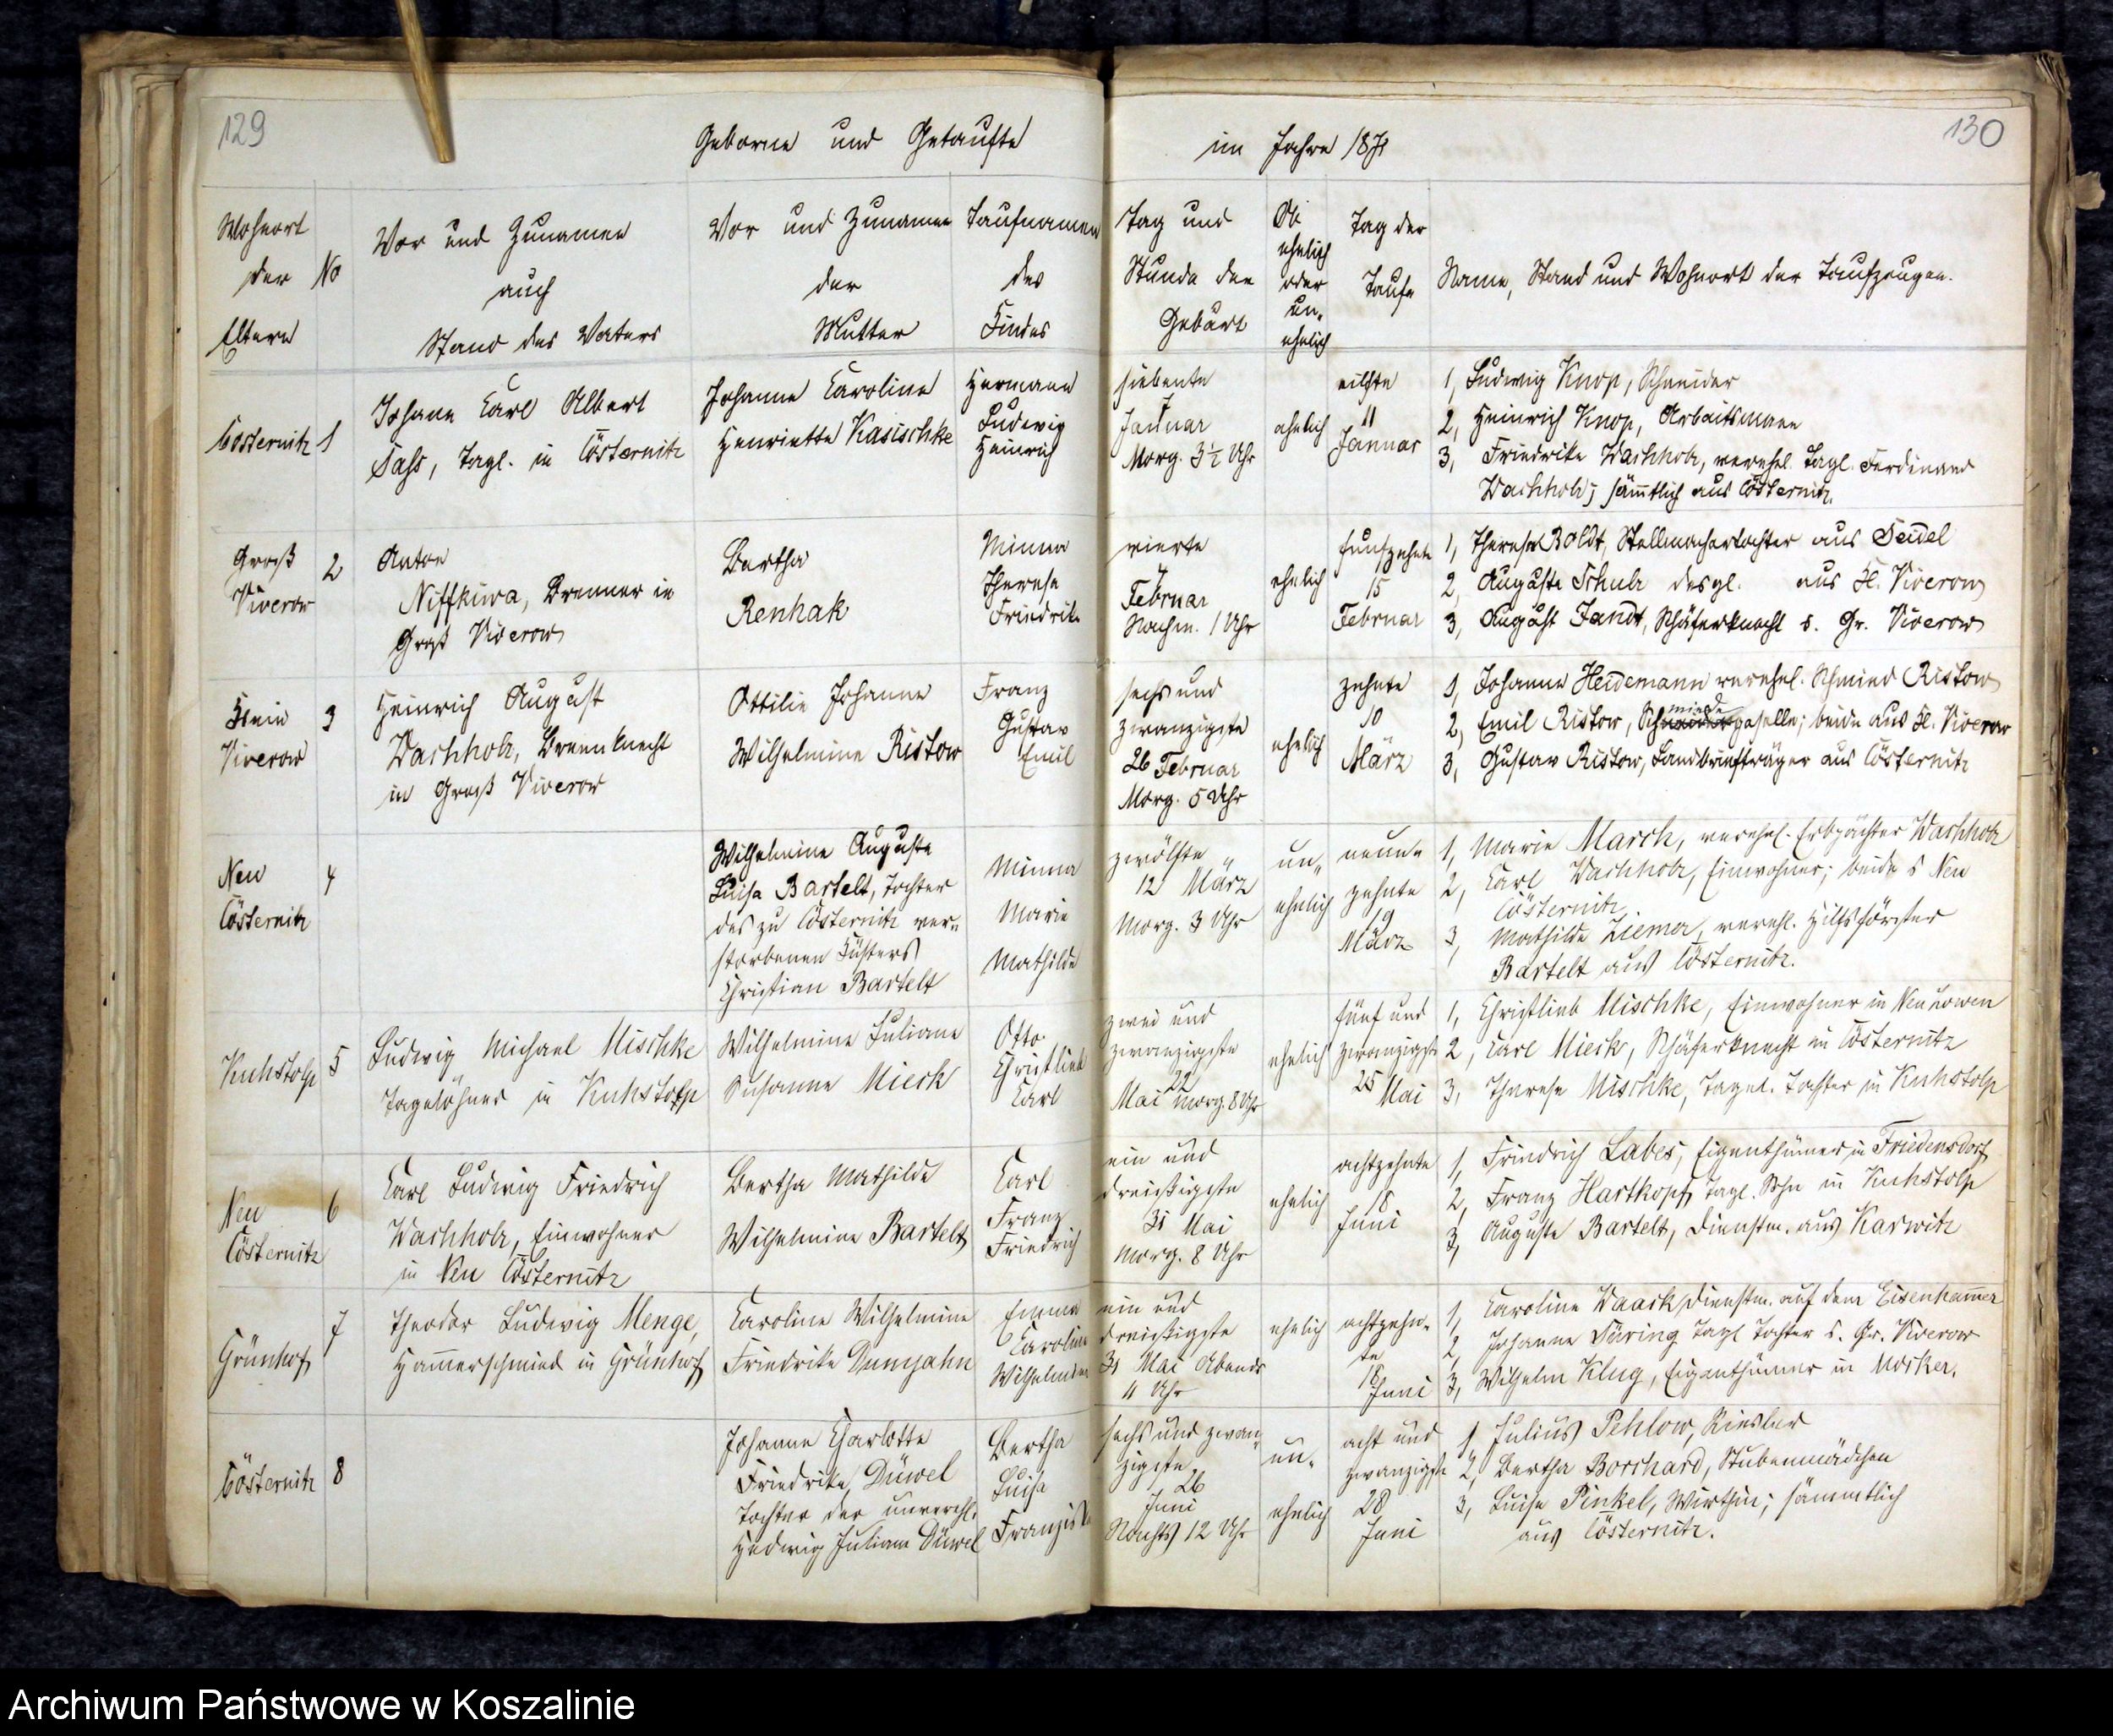 129
Geborne und Getaufte
im Jahre 1871
130
Wohnort
der
Eltern
No
Vor und Zunamen
auch
Stand des Vaters
Vor und Zunamen
der
Mutter
Taufnamen
des
Kindes
Tag und
Stunde der
Geburt
Ob
ehelich
oder
un-
ehelich
Tag der
Taufe
Name, Stand und Wohnort der Taufzeugen.
Cösternitz
1
Johann Carl Albert
Tagl. in Cösternitz
Johanne Caroline
Henriette Kasischke
Hermann
Ludwig
Heinrich
siebente
7
Januar
Morg. 3½ Uhr
ehelich
eilfte
11
Januar
1, Ludwig Knop, Schneider
2, Heinrich Knop, Arbeitsmann
3, Friedrike Wachholz, verehel. Tagl. Ferdinand
Wachholz; sämtlich aus Cösternitz.
Groß
Viverow
2
Anton
Niffkiwa, Brenner in
Groß Viverow
Bertha
Renhak
Minna
Therese
Friedrike
vierte
4
Februar
Nachm. 1 Uhr
ehelich
funfzehnte
15
Februar
1, Therese Boldt, Stellmachertochter aus Seidel
2, Auguste Schulz desgl. aus Kl. Viverow
3, August Jandt, Schäferknecht s. Gr. Viverow
Klein
Viverow
3
Heinrich August
Wachholz, Brennknecht
in Groß Viverow
Ottilie Johanne
Wilhelmine Ristow
Franz
Gustav
Emil
sechs und
zwanzigste
26 Februar
Morg. 5 Uhr
ehelich
zehnte
10
März
1, Johanne Heidemann verehel. Schmied Ristow
2, Emil Ristow, Schmiedegeselle; beide aus Kl. Viverow
3, Gustav Ristow, Landbriefträger aus Cösternitz
Neu
Cösternitz
4
Wilhelmine Auguste
Luise Bartelt, Tochter
des zu Cösternitz ver-
storbenen Küsters
Christian Bartelt
Minna
Marie
Mathilde
zwölfte
12 März
Morg. 3 Uhr
un-
ehelich
neun-
zehnte
19
März
1, Marie March, verehel. Erbpächter Wachholz
2, Carl Wachholz, Einwohner; beide s Neu
Cösternitz
3, Mathilde Ziemer, verehl. Hilfsförster
Bartelt aus Cösternitz.
Kuhstolp
5
Ludwig Michael Mischke
Tagelöhner in Kuhstolp
Wilhelmine Juliane
Susanne Mieck
Otto
Christlieb
Carl
zwei und
zwanzigste
22
Mai Morg. 8 Uhr
ehelich
fünf und
zwanzigste
25
Mai
1, Christlieb Mischke, Einwohner in Neu
2, Carl Mieck, Schäferknecht in Cösternitz
3, Therese Mischke, Tagel. Tochter in Kuhstolp
Neu
Cösternitz
6
Carl Ludwig Friedrich
Wachholz, Einwohner
in Neu Cösternitz
Bertha Mathilde
Wilhelmine Bartelt
Carl
Franz
Friedrich
ein und
dreißigste
31 Mai
Morg. 8 Uhr
ehelich
achtzehnte
18
Juni
1, Friedrich Labes, Eigenthümer in Friedensdorf
2, Franz Hartkopf, Tagl. Sohn in Kuhstolp
3, Auguste Bartelt, Dienstm. aus Karwitz
Grünhof
7
Theodor Ludwig Menge,
Hammerschmied in Grünhof
Caroline Wilhelmine
Friedrike Dumjahn
Emma
Caroline
Wilhelmine
ein und
dreißigste
31 Mai Abends
11 Uhr
ehelich
achtzehn-
te
18
Juni
1, Caroline Waack, Dienstm. auf dem Eisenhammer
2, Johanne Düring, Tagl Tochter s. Gr. Viverow
3, Wilhelm Klug, Eigenthümer in Mocker.
Cösternitz
8
Johanne Charlotte
Friedrike Düwel
Tochter der unverehl.
Hedwig Juliane Düwel
Bertha
Luise
Franziska
sechs und zwan-
zigste
26
Juni
Nachts 12 Uhr
un-
ehelich
acht und
zwanzigste
28
Juni
1, Julius Pehlow,
2, Bertha Borchard, Stubenmädchen
3, Luise Pinkel, Wirthin; sämmtlich
aus Cösternitz.
Archiwum Państwowe w Koszalinie